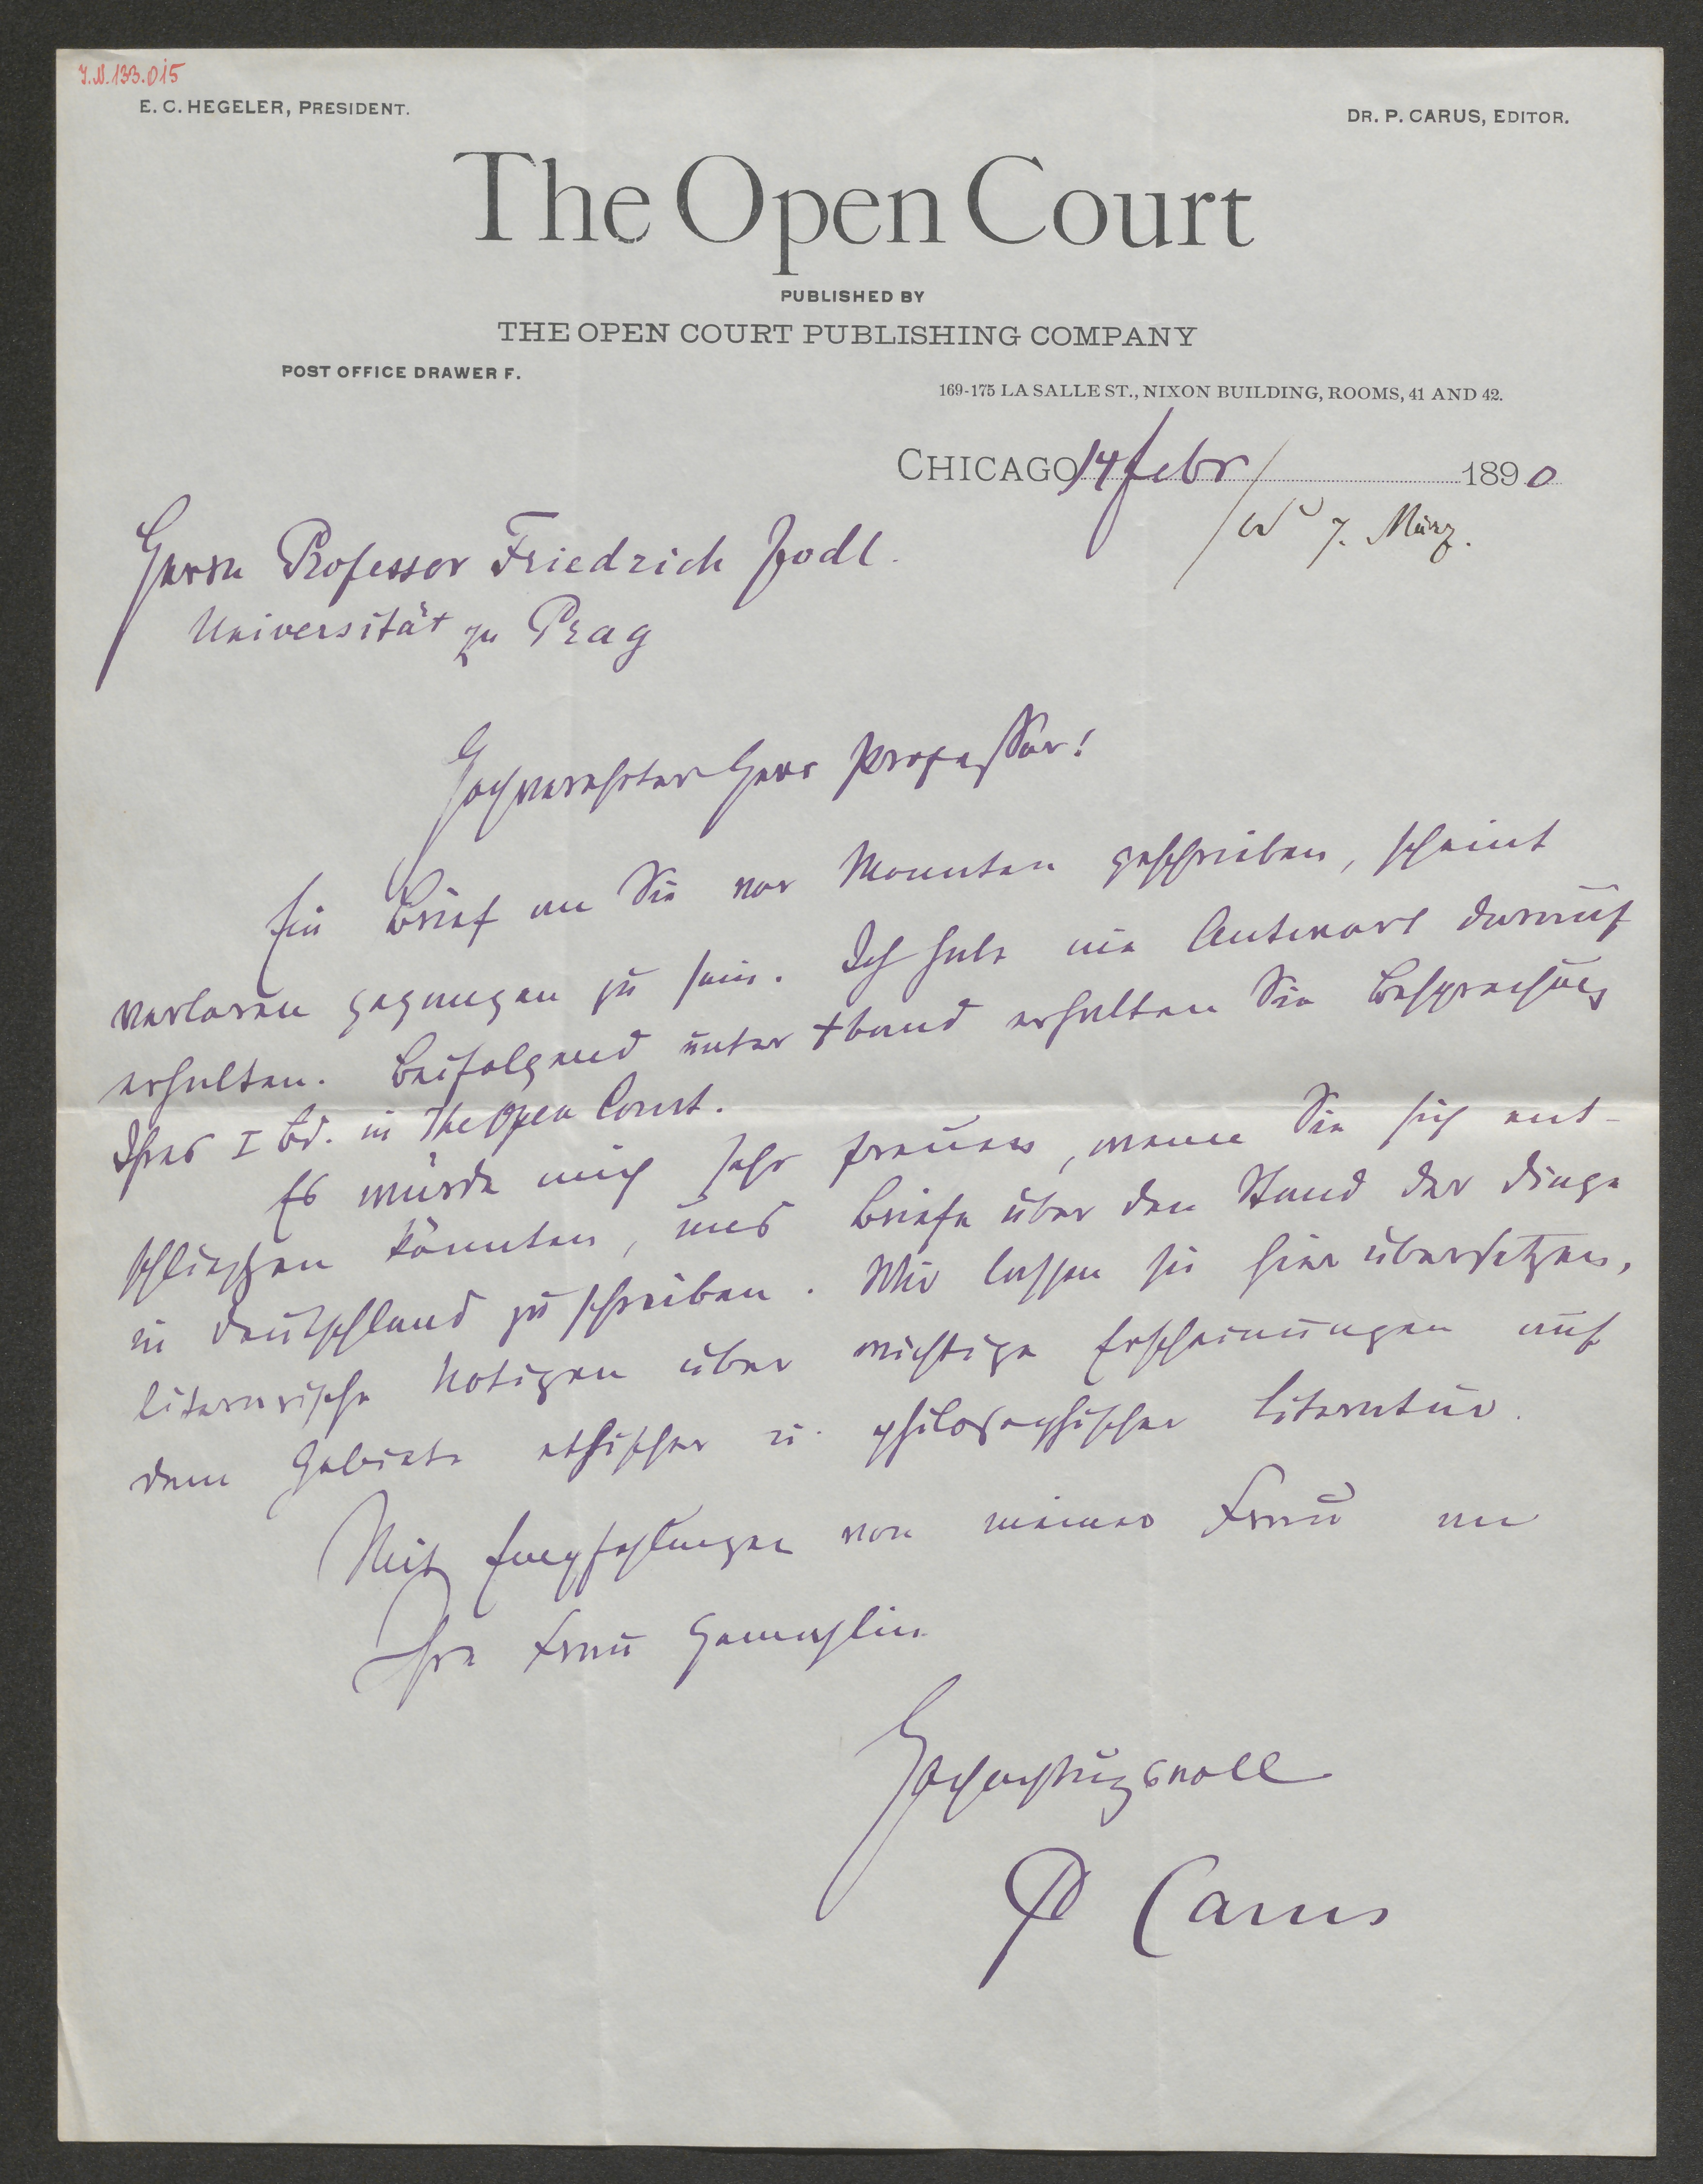 J.N. 133.015
E. C. HEGELER, PRESIDENT.
DR. P. CARUS, EDITOR.
The Open Court
PUBLISHED BY
THE OPEN COURT PUBLISHING COMPANY
POST OFFICE DRAWER F.
169-175 LA SALLE ST., NIXON BUILDING, ROOMS, 41 AND 42.
CHICAGO 14 Febr 1890
7. März.
Herrn Professor Friedrich Jodl.
Universität zu Prag
Hochverehrter Herr Professor!
Ein Brief an Sie vor Monaten geschrieben, scheint
verloren gegangen zu sein. Ich habe nie Antwort darauf
erhalten. Beifolgend unter +band erhalten Sie Besprechung
Ihres I Bd. in The Open Court.
Es würde mich sehr freuen, wenn Sie sich ent-
schließen könnten, uns Briefe über den Stand der Dinge
in Deutschland zu schreiben. Wir lassen sie hier übersetzen,
literarische Notizen über wichtige Erscheinungen auf
dem Gebiete ethischer u. philosophischer Literatur.
Mit Empfehlungen von meiner Frau an
Ihre Frau Gemahlin
Hochachtungsvoll
P Carus